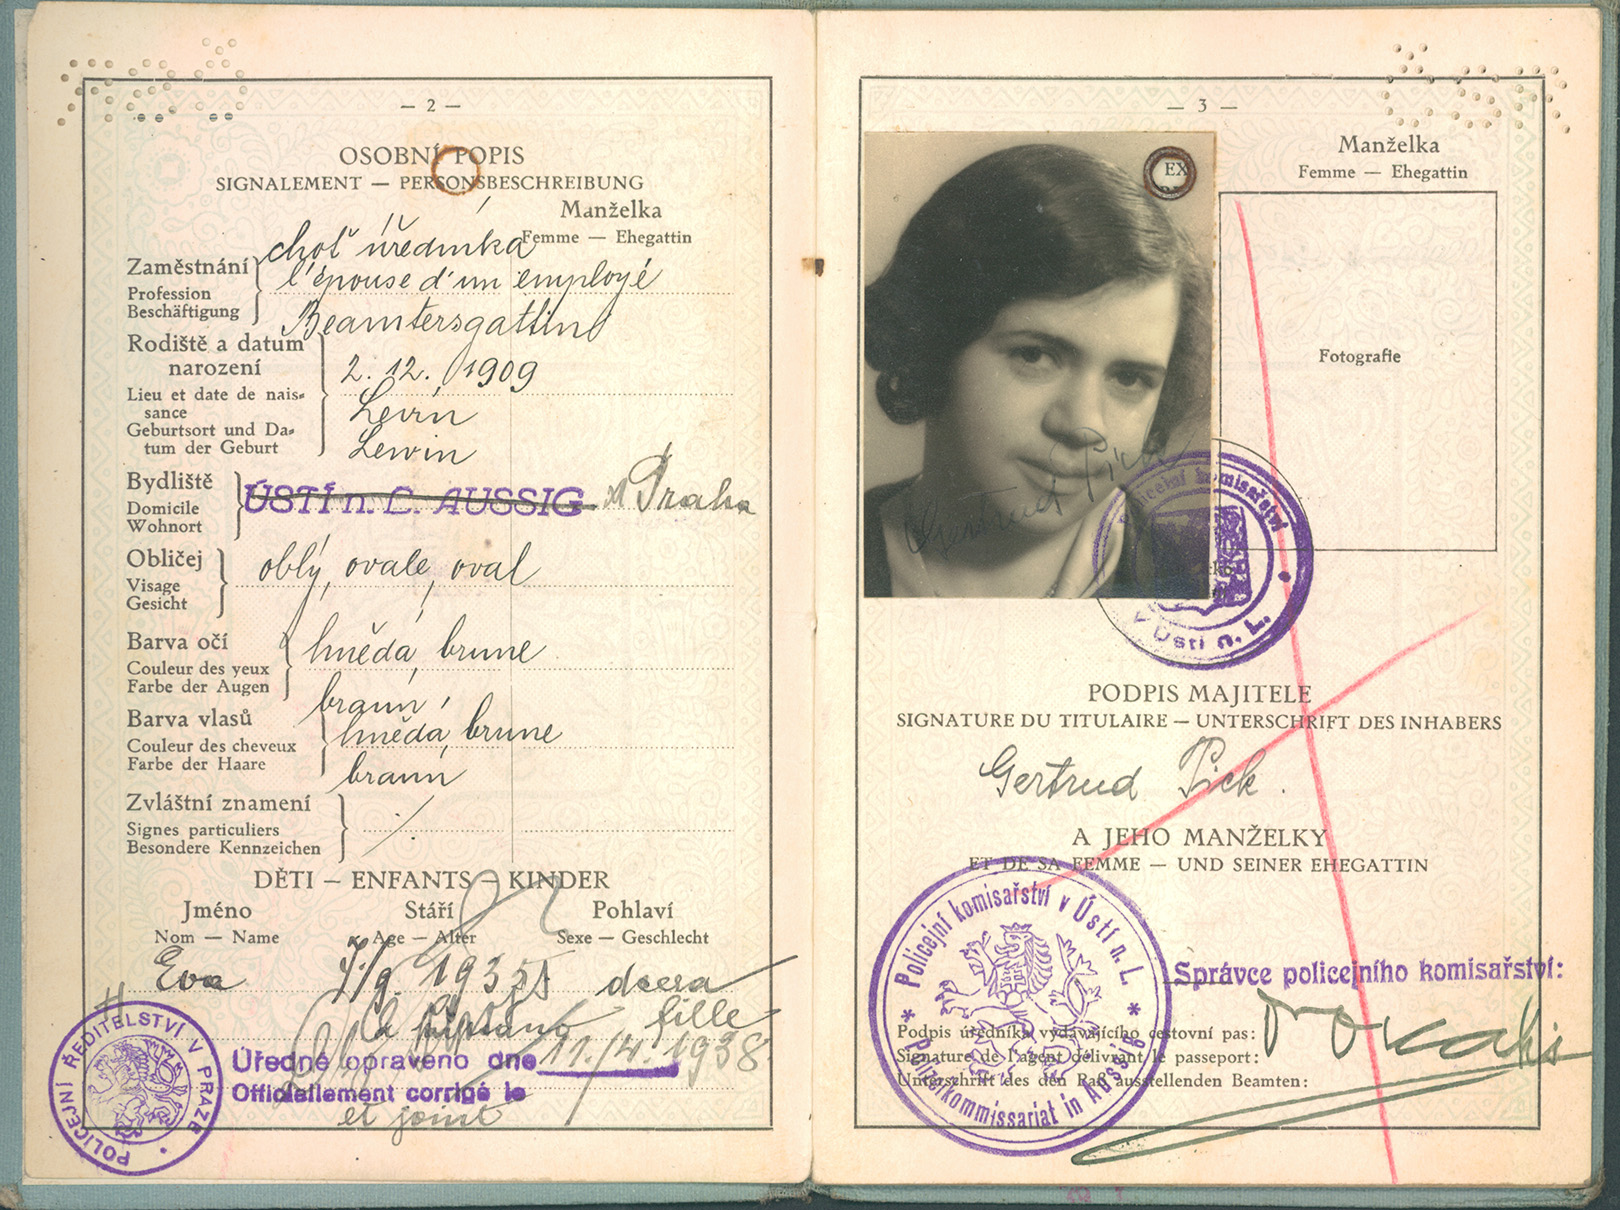 — 2 —
OSOBNÍ POPIS
SIGNALEMENT — PERSONSBESCHREIBUNG
Manželka
Femme — Ehegattin
choť úředníka
Zaměstnání
l'épouse d'un employé
Profession
Beschäftigung
Beamtersgattin
Rodiště a datum
narození
2. 12. 1909
Lieu et date de nais=
sance
Levín
Geburtsort und Da=
tum der Geburt
Lewin
Bydliště
Domicile
Wohnort
ÚSTÍ n. L. AUSSIG Praha
Obličej
Visage
Gesicht
oblý, ovale, oval
Barva očí
Couleur des yeux
Farbe der Augen
hnědá, brune
braun
Barva vlasů
Couleur des cheveux
Farbe der Haare
hnědá, brune
braun
Zvláštní znamení
Signes particuliers
Besondere Kennzeichen
DĚTI — ENFANTS — KINDER
Jméno Stáří Pohlaví
Nom — Name Age — Alter Sexe — Geschlecht
Eva 7/9. 1935 dcera
a připsáno fille
Úředně opraveno dne 11./4. 1938
Officiellement corrigé le
et joint
POLICEJNÍ ŘEDITELSTVÍ V PRAZE
— 3 —
Manželka
Femme — Ehegattin
EX
Fotografie
Gertrud Pick
Policejní komisařství
v Ústí n. L.
PODPIS MAJITELE
SIGNATURE DU TITULAIRE — UNTERSCHRIFT DES INHABERS
Gertrud Pick.
A JEHO MANŽELKY
ET DE SA FEMME — UND SEINER EHEGATTIN
Policejní komisařství v Ústí n. L.
Polizeikommissariat in Aussig
Správce policejního komisařství:
Podpis úředníka vydávajícího cestovní pas:
Signature de l'agent délivrant le passeport:
Unterschrift des den Paß ausstellenden Beamten: